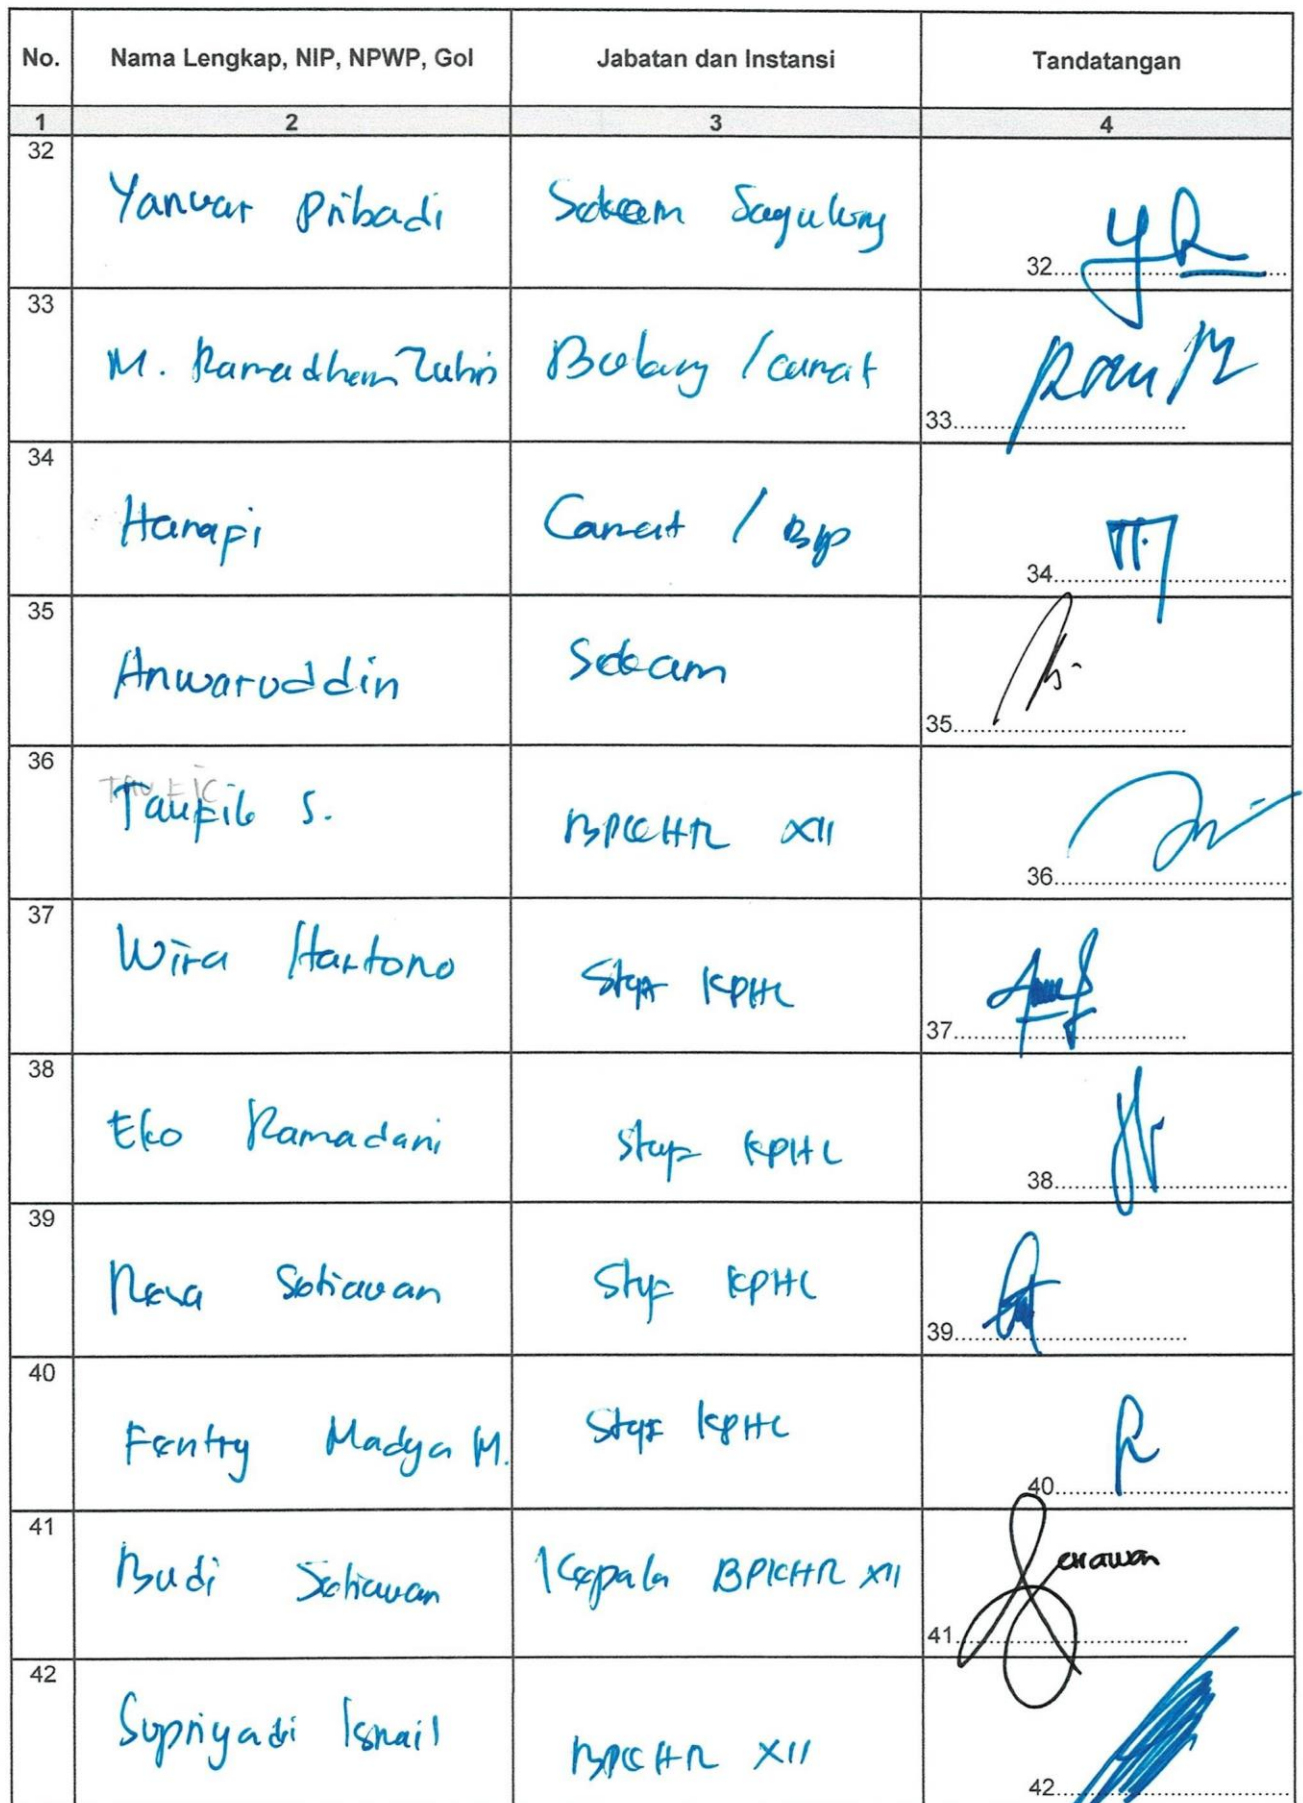 No. Nama Lengkap, NIP, NPWP, Gol Jabatan dan Instansi Tandatangan
1 2 3 4
32 Yanuar Pribadi Sekcam Sagulung 32
33 M. Ramadhan / Camat 33
34 Hanapi Camat / 34
35 Anwaruddin Sekcam 35
TAUFIC
36 Taufik S. BPKHTL XII 36
37 Wira Hartono Staf KPHL 37
38 Eko Ramadani Staf KPHL 38
39 Setiawan Staf KPHL 39
40 Fentry Madya M. Staf KPHL 40
41 Budi Setiawan Kepala BPKHTL XII 41
42 Supriyadi Ismail BPKHTL XII 42